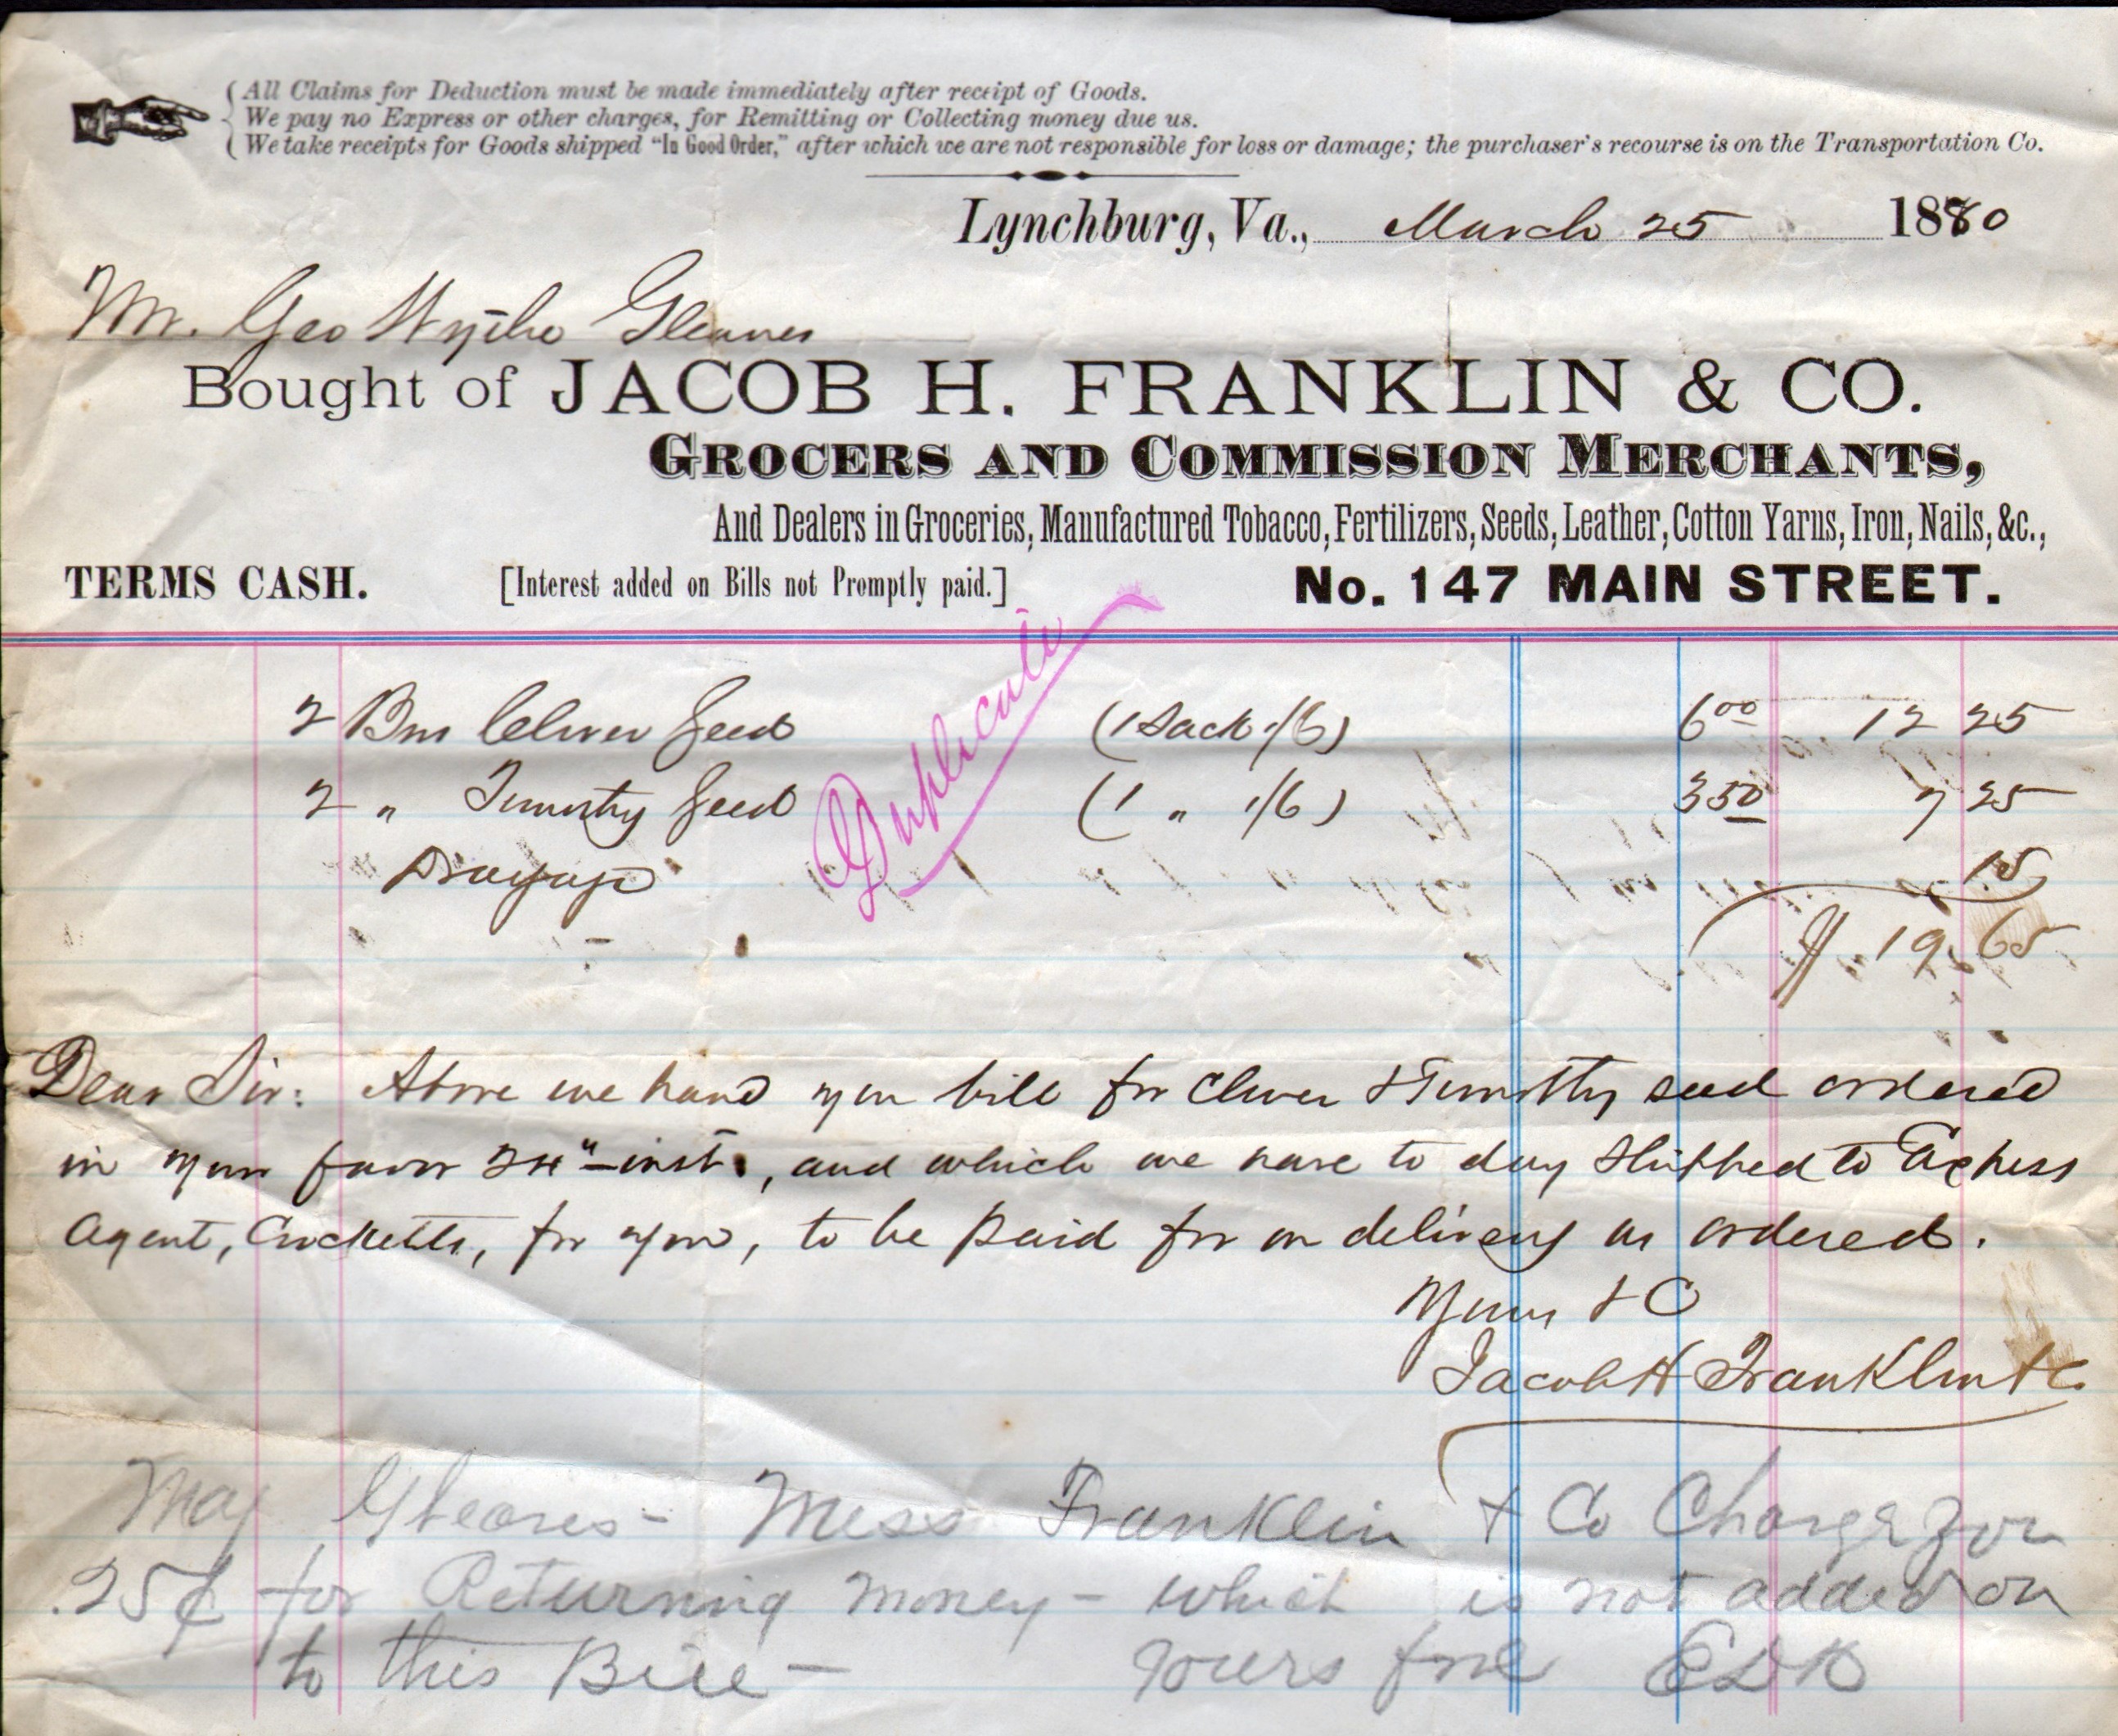 All Claims for Deduction must be made immediately after receipt of Goods.
We pay no Express or other charges, for Remitting or Collecting money due us.
We take receipts for Goods shipped "In Good Order," after which we are not responsible for loss or damage; the purchaser's recourse is on the Transportation Co.
Lynchburg, Va., March 25 1880
Mr. Geo Wythe Gleaves
Bought of JACOB H. FRANKLIN & CO.
GROCERS AND COMMISSION MERCHANTS,
And Dealers in Groceries, Manufactured Tobacco, Fertilizers, Seeds, Leather, Cotton Yarns, Iron, Nails, &c.,
TERMS CASH. [Interest added on Bills not Promptly paid.] No. 147 MAIN STREET.
Duplicate
2 Bus Clover Seed (1 Sack 1/6) 6 00 12 25
2 " Timothy Seed (1 " 1/6) 3 50 7 25
Drayage 15
$ 19.65
Dear Sir: Above we hand you bill for Clover & Timothy seed ordered
in your favor 24" inst., and which we have to day shipped to Express
Agent, Crocketts, for you, to be paid for on delivery as ordered.
Yours &C
Jacob H Franklin & C.
Maj Gleaves - Mess Franklin + Co Charge you
.25¢ for Returning money - which is not added on
to this Bill - Yours